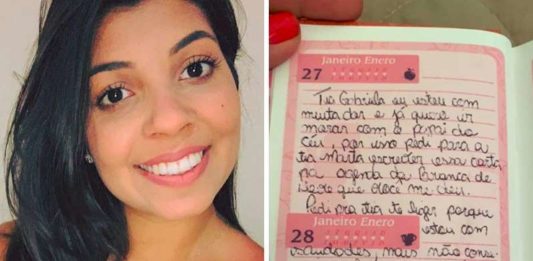 Janeiro Enero
27
Tia Gabriela eu estou com
muita dor e já quero ir
morar com o papai do
céu, por isso pedi para a
tia Marta escrever essa carta
na agenda da Branca de
Neve que você me deu.
Pedi pra tia te ligar porque
Janeiro Enero
28
estou com
saudades, mais não